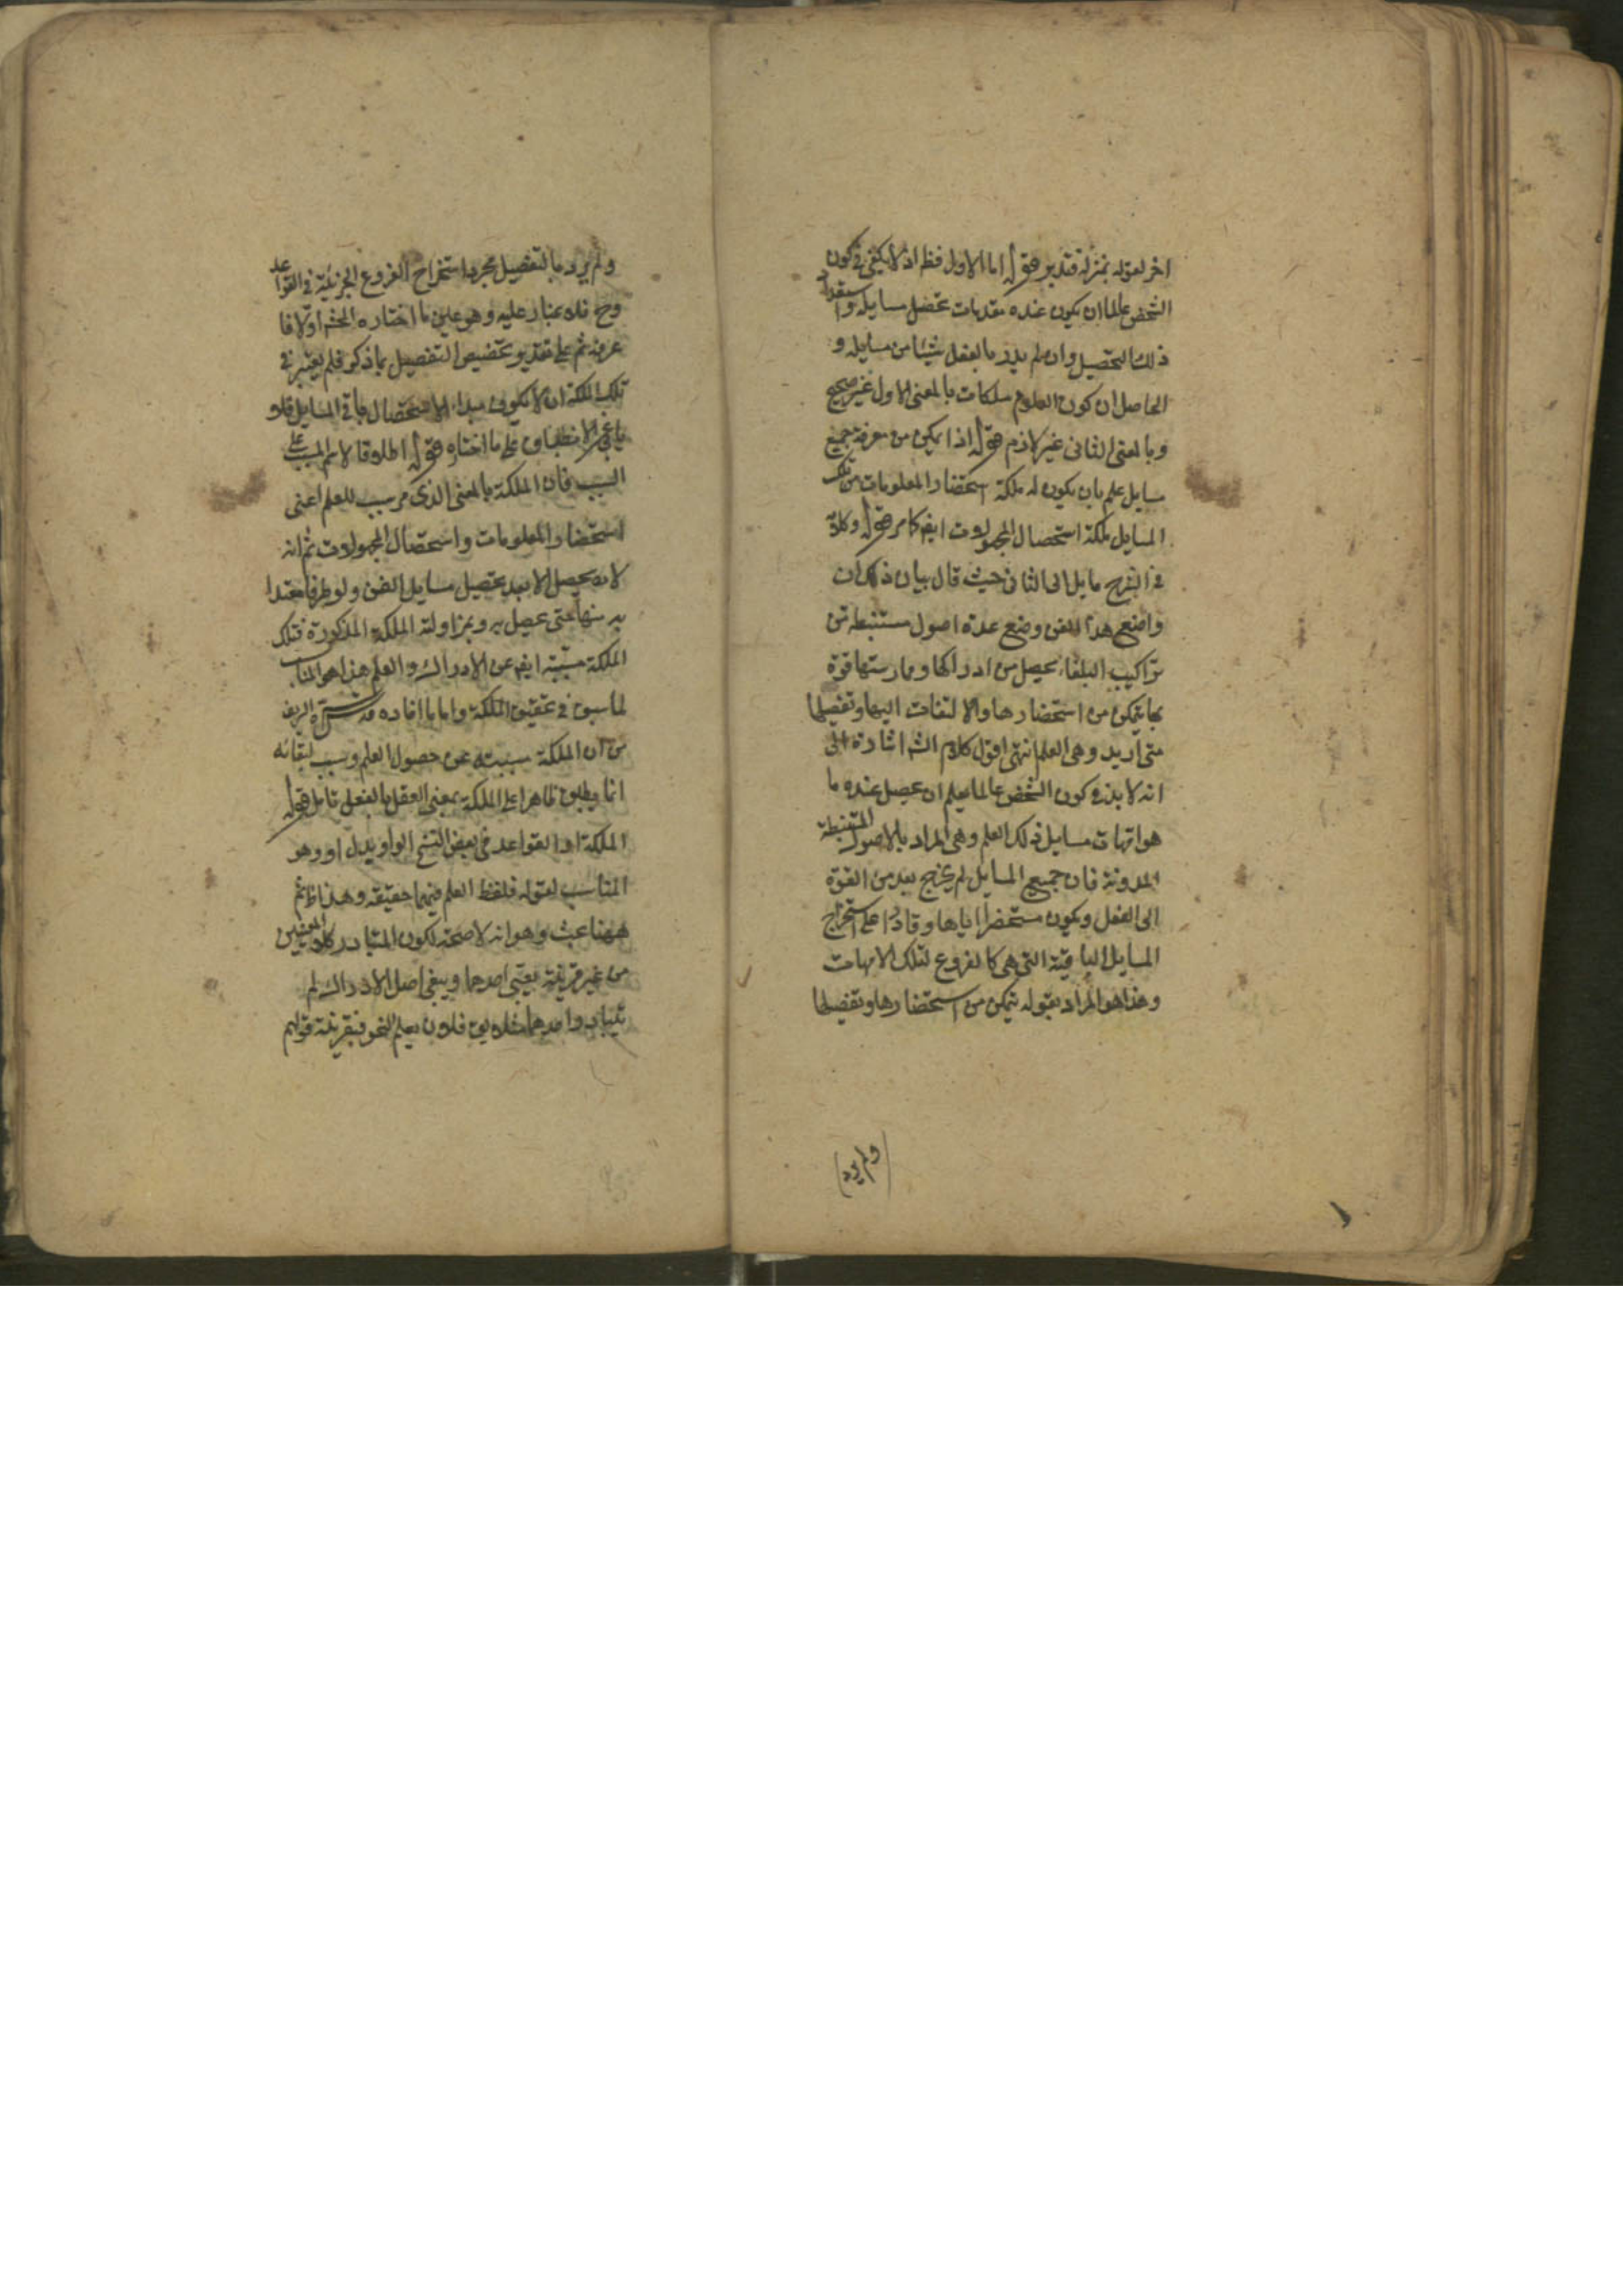 اخر لقوله بمنزلة فتدبر قوله اما الاول فظ اذ لا يكفى فى كون
الشخص عالما ان يكون عنده مقدمات تحصل مسايله واستعداد
ذلك التحصيل وان لم يدر بالفعل شيئا من مسايله و
الحاصل ان كون العلوم ملكات بالمعنى الاول غير صحيح
وبالمعنى الثانى غير لازم قوله اذا تمكن من معرفة جميع
مسايل علم بان يكون له ملكة استحضار المعلومات من تلك
المسايل ملكة استحصال المجهولات ايض كما مر قوله وكلامه
فى الشرح مايل الى الثانى حيث قال بيان ذلك ان
واضع هذا الفن وضع عدة اصول مستنبطة من
تراكيب البلغاء يحصل من ادراكها وممارستها قوة
بها يتمكن من استحضارها والالتفات اليها وتفصيلها
متى اريد وهى العلم انتهى اقول كلام الش اشارة الى
انه لا بد فى كون الشخص عالما بعلم ان يحصل عنده ما
هو امهات مسايل ذلك العلم وهى المراد بالاصول المستنبطة
المدونة فان جميع المسايل لم يخرج بعد من القوة
الى الفعل ويكون مستحضرا اياها وقادرا على استخراج
المسايل الباقية التى هى كالفروع لتلك الامهات
وهذا هو المراد بقوله يتمكن من استحضارها وتفصيلها
ولم يرد
ولم يرد بالتفصيل مجرد استخراج الفروع الجزئية فى القواعد
وح فلا غبار عليه وهو عين ما اختاره المحشى اولا فا
عرفه ثم على تقدير تخصيص التفصيل بما ذكر فلم يعتبر فى
تلك الملكة ان لا يكون مبداء الاستحصال باقى المسايل فلا
الانطباق على ما اختاره قوله اطلاقا لاسم المسبب على
السبب فان الملكة بالمعنى الذى مر سبب للعلم اعنى
استحضار المعلومات واستحصال المجهولات ثم انه
لا يحصل الا بعد تحصيل مسايل الفن ولو طرفا معتدا
به منها حتى يحصل به وبمزاولته الملكة المذكورة فتلك
الملكة مسببة ايض عن الادراك والعلم هذا هو المناسب
لما سبق فى تحقيق الملكة واما ما افاده قدس سره الشريف
من ان الملكة مسببة عن حصول العلم وسبب لبقائه
انما يطلق ظاهرا على الملكة بمعنى العقل بالفعل تامل قوله
الملكة او القواعد فى بعض النسخ الواو بدل او وهو
المناسب لقوله فلفظ العلم فيهما حقيقة وهذا ظ ثم
ههنا بحث وهو انه لا صحة لكون المتبادر كلا المعنيين
من غير قرينة يعين احدهما وينفى اصل الادراك لم
يتبادر واحدهما فلان يعلم النحو فبقرينة قولهم